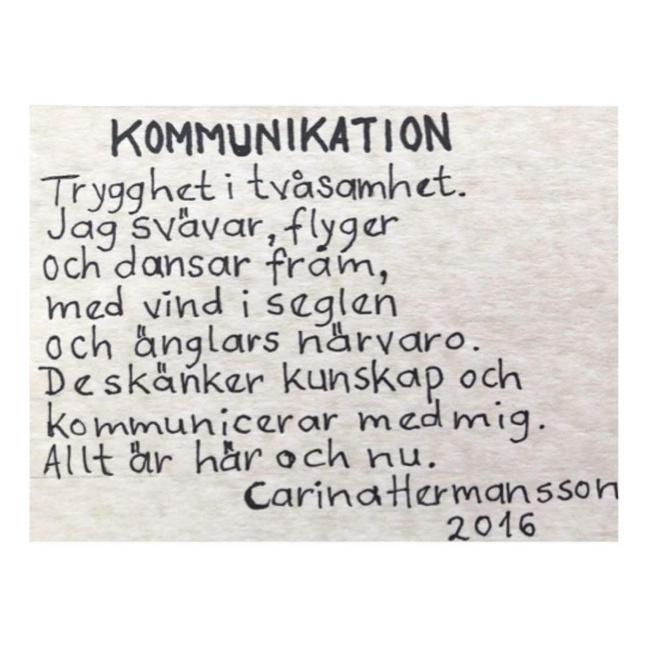 KOMMUNIKATION
Trygghet i tvåsamhet.
Jag svävar, flyger
och dansar fram,
med vind i seglen
och änglars närvaro.
De skänker kunskap och
kommunicerar med mig.
Allt är här och nu.
Carina Hermansson
2016